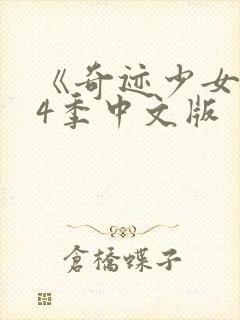 《奇迹少女
4季中文版
倉橋蝶子